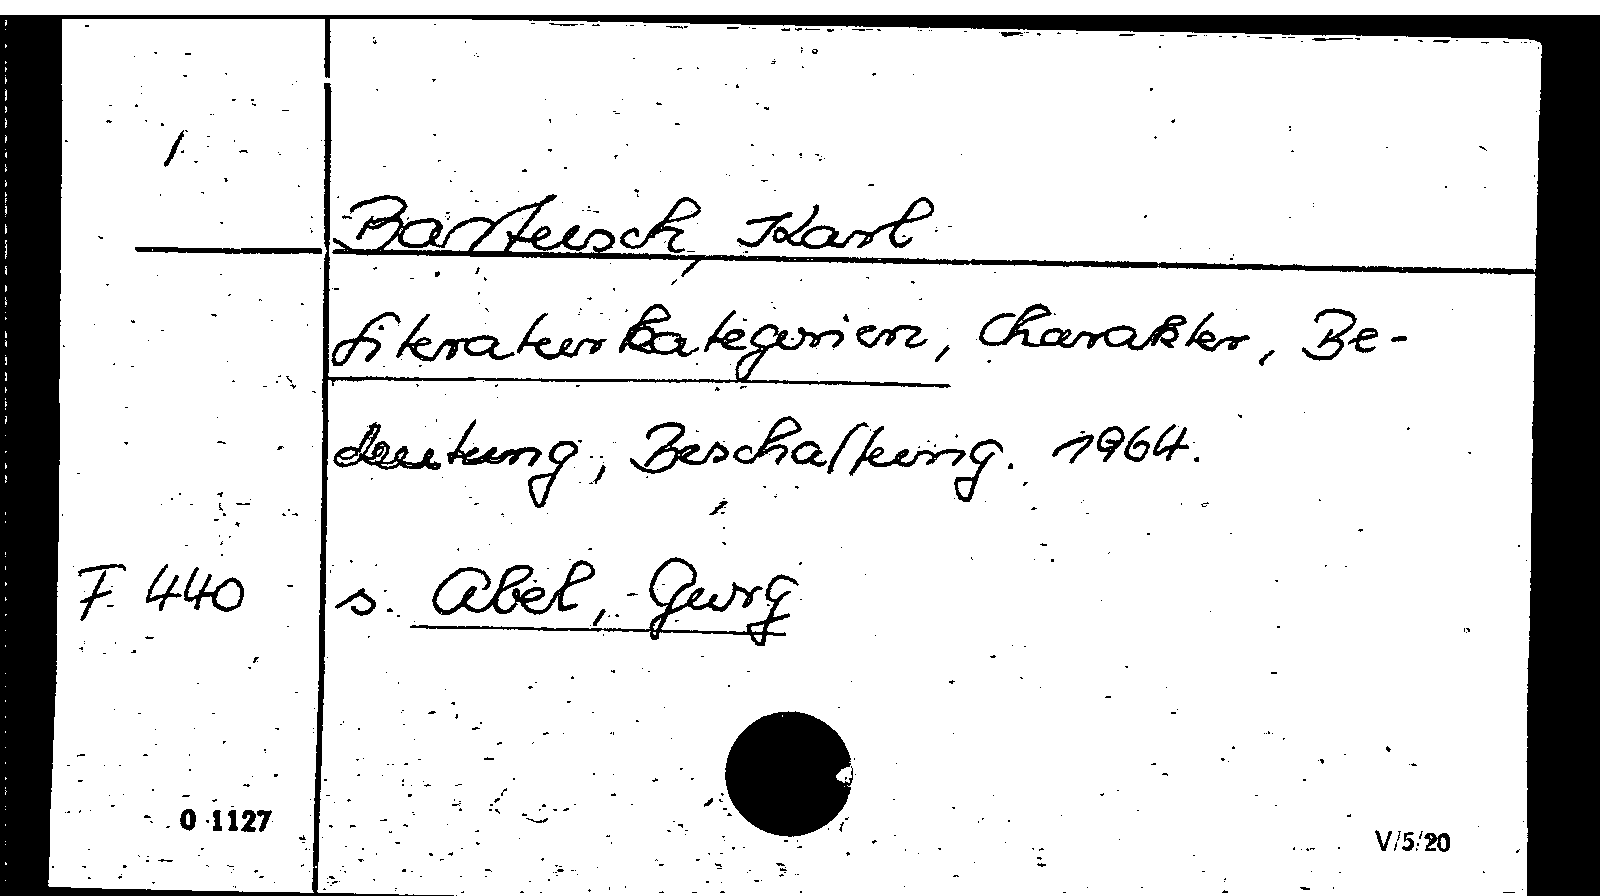 Bartusch, Karl
Literaturkategorien, Charakter, Be-
deutung, Beschaffung. 1964.
F 440 s. Abel, Georg
O 1127
V/5/20